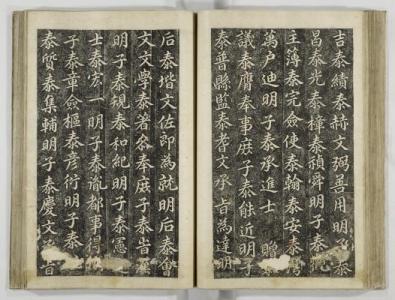 吉泰績泰赫文弼善用明子泰
昌泰光泰樟泰禎舜明子泰
主簿泰完僉使泰翰泰安泰
萬戶迪明子泰承進士 贈
議泰膺奉事庶子泰能近明子
泰普縣監泰考文承旨為達明
后泰堦文佐郎為就明后泰
文文學泰著參奉庶子泰
明子泰規泰和紀明子泰憲
士泰完一明子泰胤都事得
子泰章僉樞泰彥衍明子泰
泰質泰集輔明子泰慶文 旨